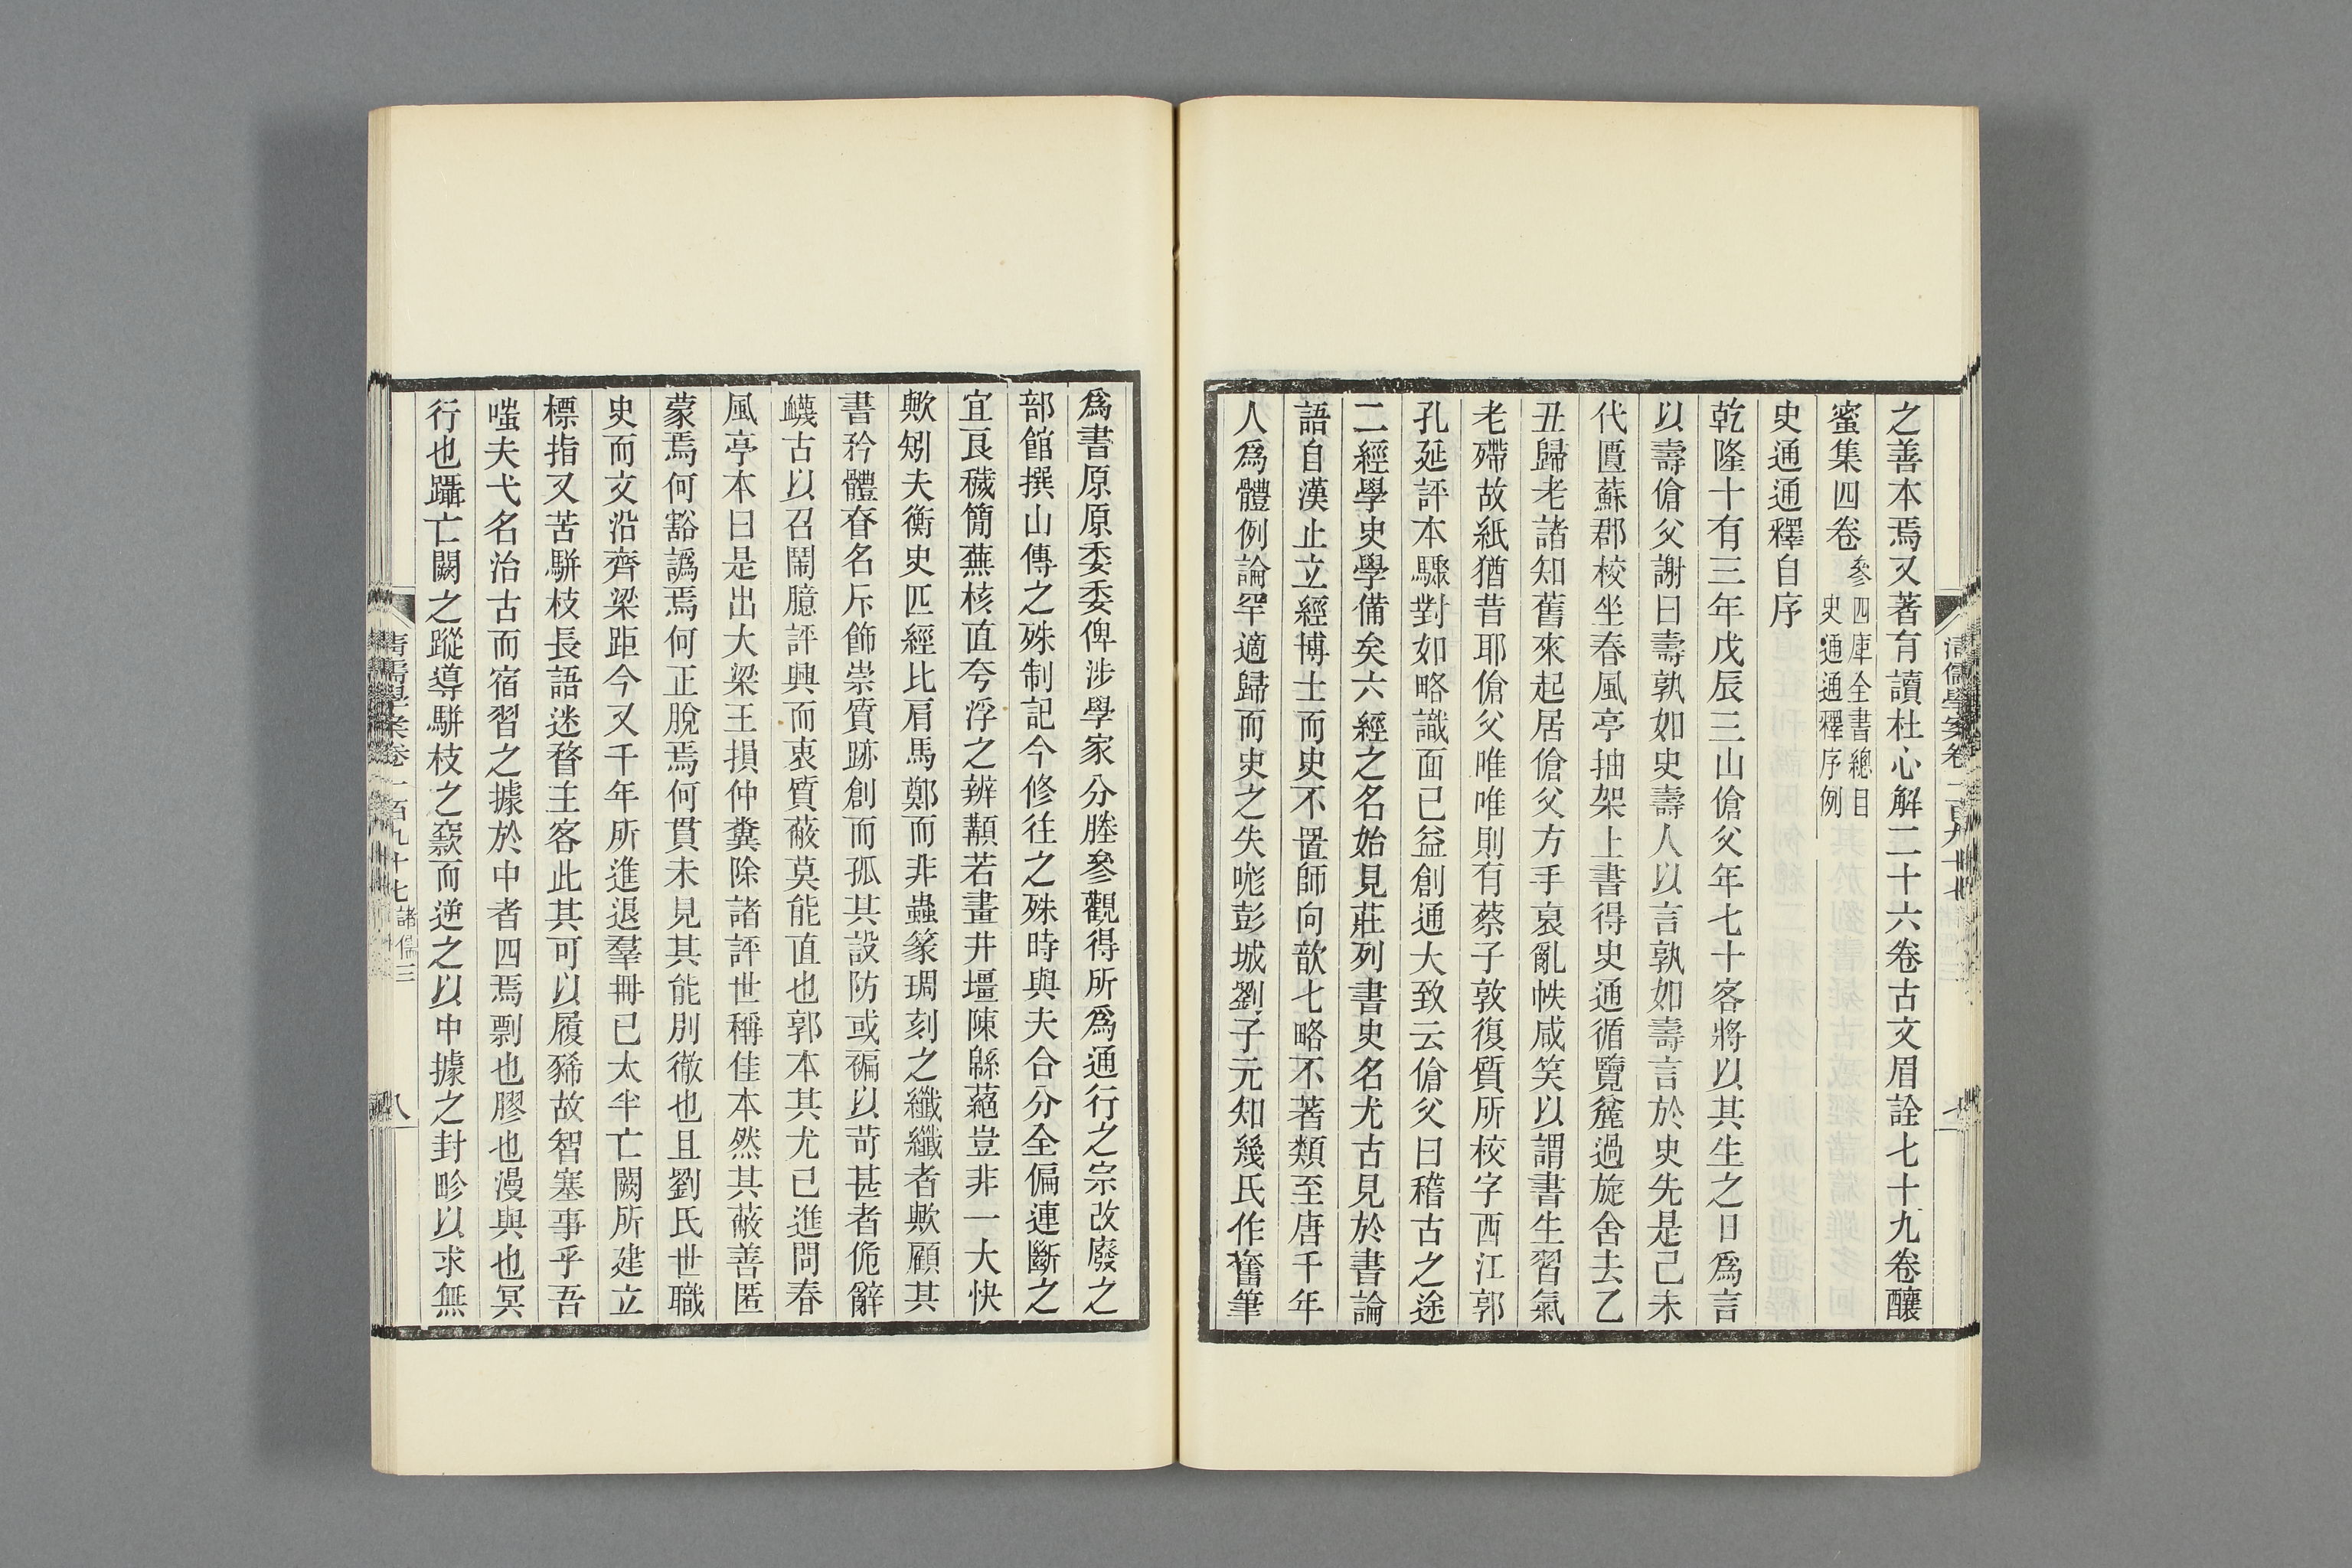 之善本焉又著有讀杜心解二十六卷古文眉詮七十九卷釀
蜜集四卷參四庫全書總目
史通通釋序例
史通通釋自序
乾隆十有三年戊辰三山傖父年七十客將以其生之日爲言
以壽傖父謝曰壽孰如史壽人以言孰如壽言於史先是己未
代匱蘇郡校坐春風亭抽架上書得史通循覽麄過旋舍去乙
丑歸老諸知舊來起居傖父方手裒亂帙咸笑以謂書生習氣
老殢故紙猶昔耶傖父唯唯則有蔡子敦復質所校字西江郭
孔延評本驟對如略識面已益創通大致云傖父曰稽古之途
二經學史學備矣六經之名始見莊列書史名尤古見於書論
語自漢止立經博士而史不置師向歆七略不著類至唐千年
人爲體例論罕適歸而史之失咙彭城劉子元知幾氏作奮筆
爲書原原委委俾涉學家分塍參觀得所爲通行之宗改廢之
部館撰山傳之殊制記今修往之殊時與夫合分全偏連斷之
宜良穢簡蕪核直夸浮之辨顜若畫井壃陳緜蕝豈非一大快
歟矧夫衡史匹經比肩馬鄭而非蟲篆琱刻之纖纖者歟顧其
書矜體眘名斥飾崇質跡創而孤其設防或褊以苛甚者佹辭
衊古以召鬧臆評興而衷質蔽莫能直也郭本其尤已進問春
風亭本曰是出大梁王損仲糞除諸評世稱佳本然其蔽善匿
蒙焉何豁譌焉何正脫焉何貫未見其能別徹也且劉氏世職
史而文沿齊梁距今又千年所進退羣冊已太半亡闕所建立
標指又苦駢枝長語迷瞀主客此其可以履豨故智塞事乎吾
嗤夫弋名治古而宿習之據於中者四焉剽也膠也漫與也冥
行也躡亡闕之蹤導駢枝之窾而逆之以中據之封畛以求無
清儒學案卷一百九十七
諸儒三
八